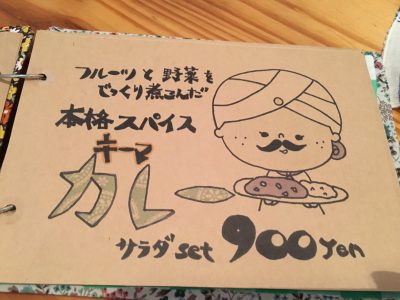 フルーツと野菜を
じっくり煮こんだ
本格スパイス
キーマ
カレー
サラダset 900yen